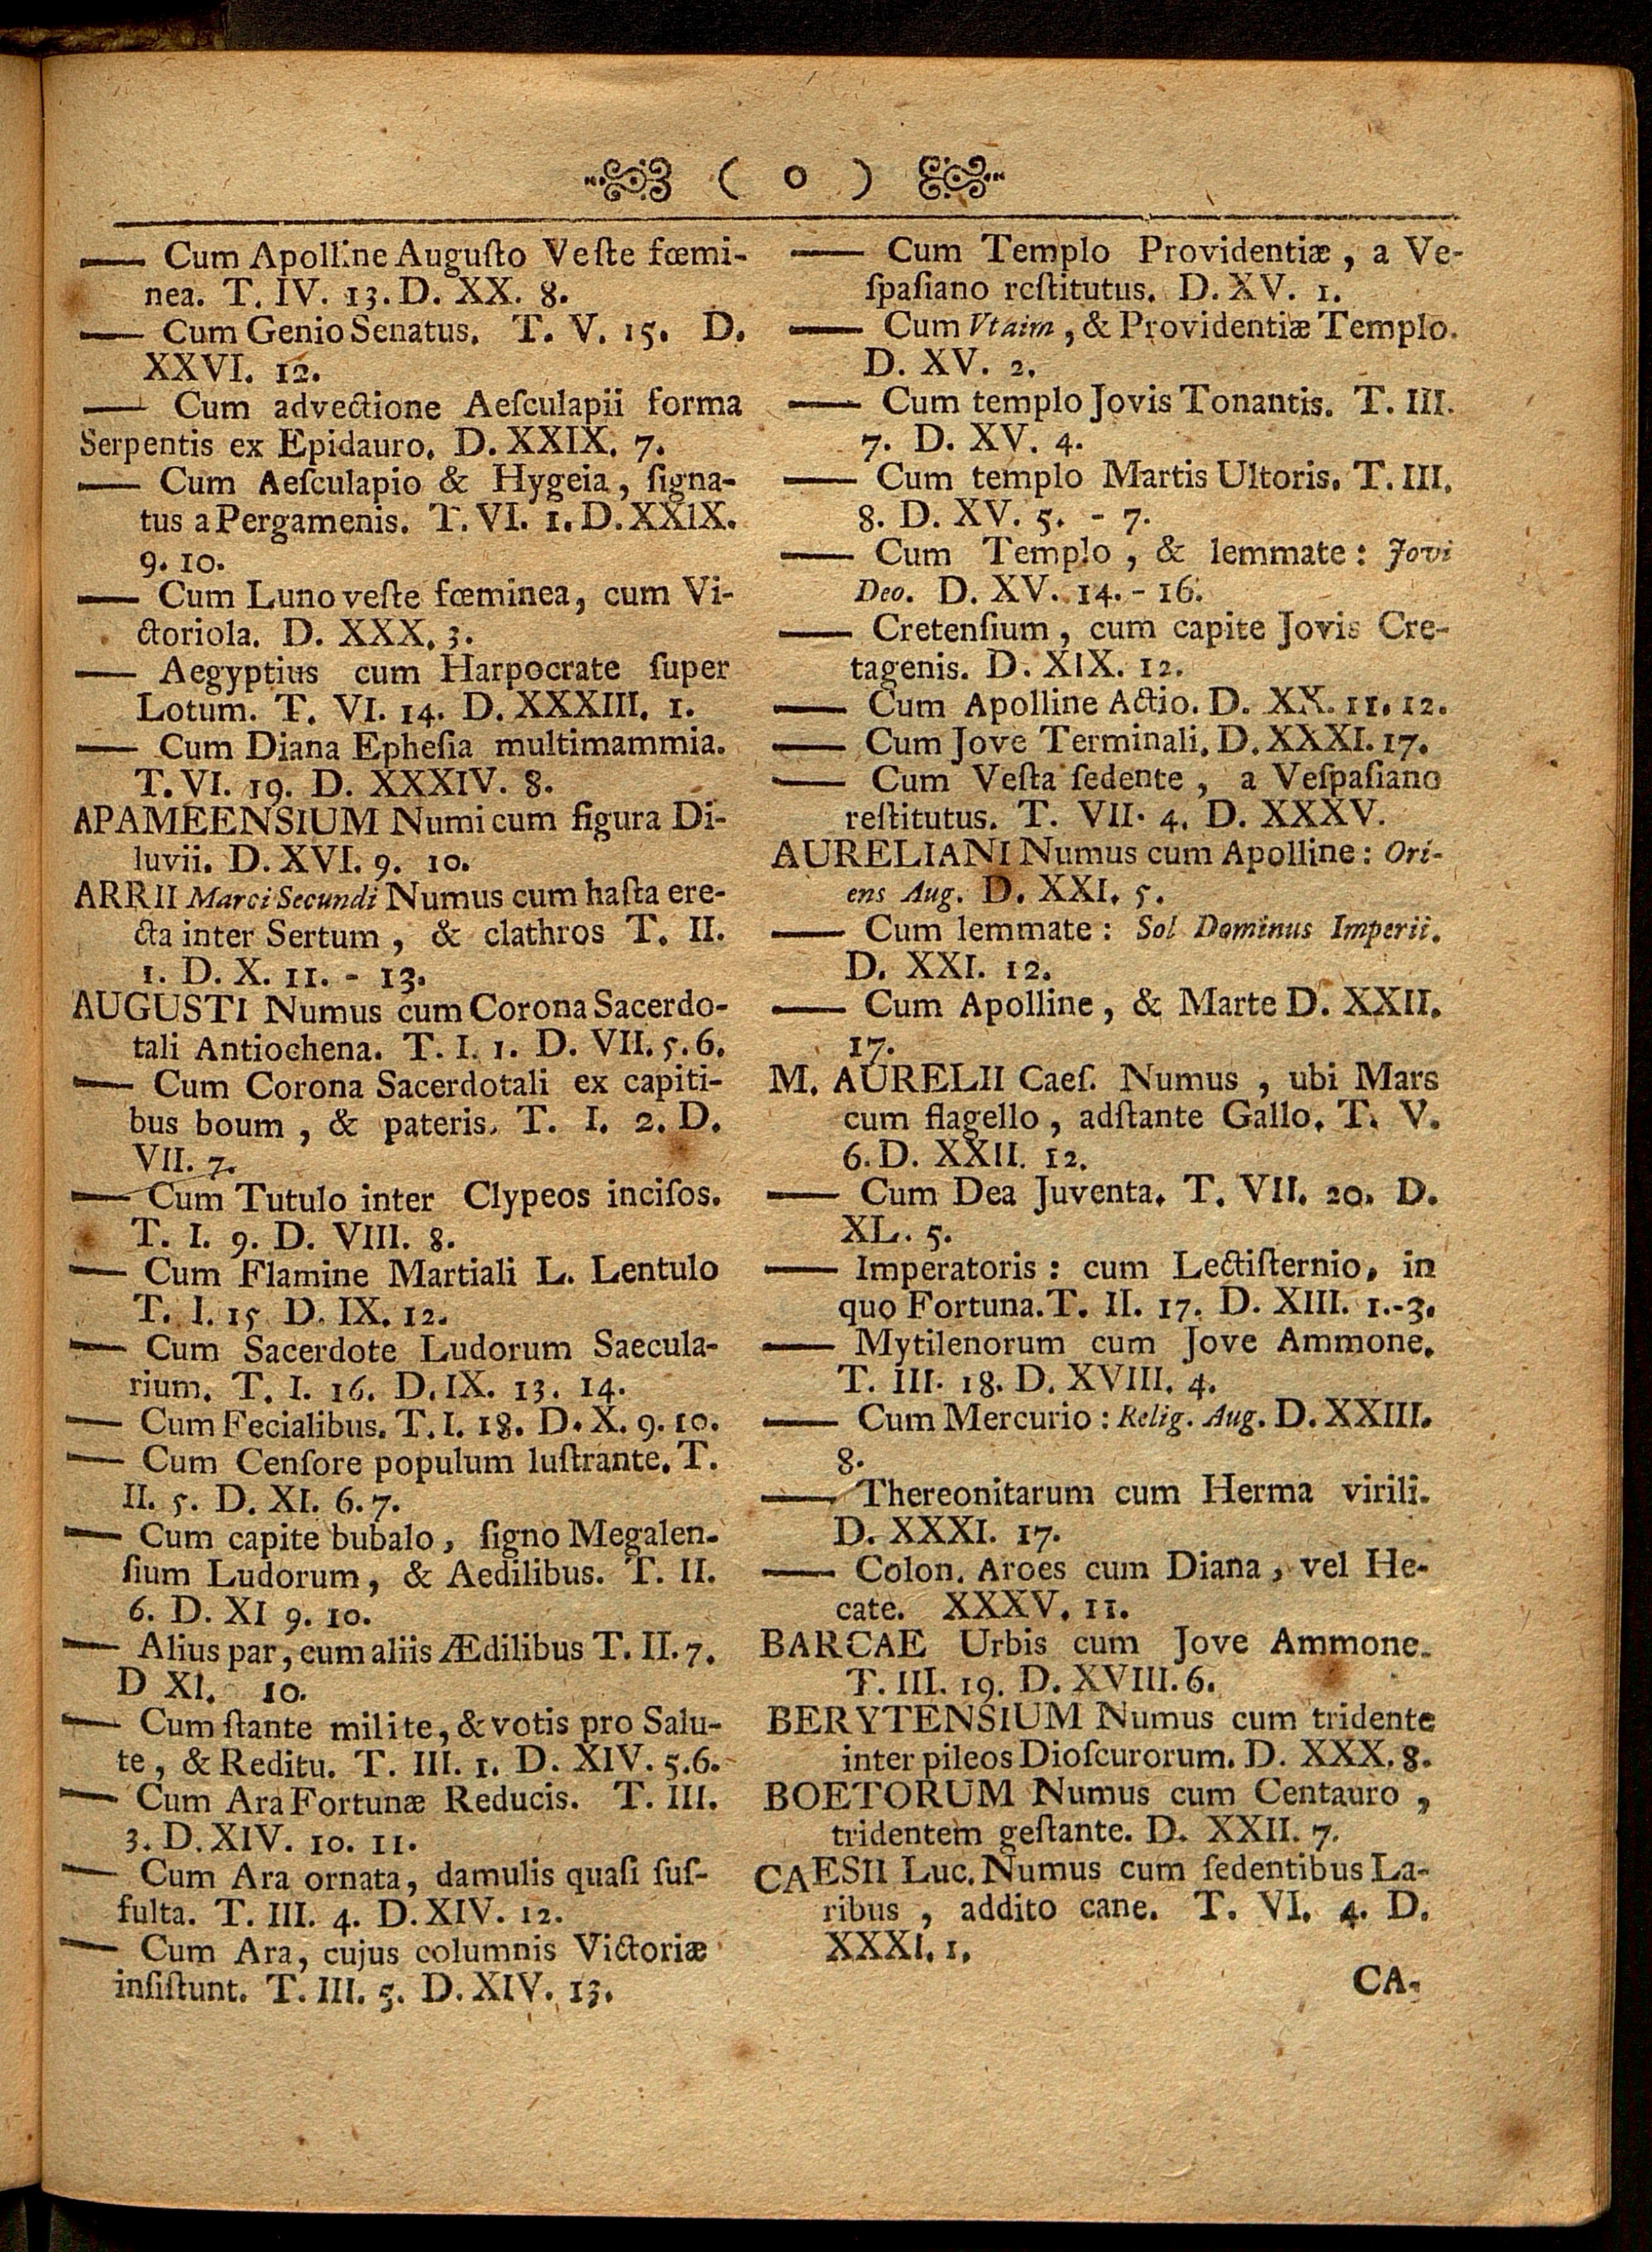 ( 0 )
— Cum Apolline Auguſto Veſte fœmi-
nea. T. IV. 13. D. XX. 8.
— Cum Genio Senatus. T. V. 15. D.
XXVI. 12.
— Cum advectione Aeſculapii forma
Serpentis ex Epidauro. D. XXIX. 7.
— Cum Aeſculapio & Hygeia, ſigna-
tus a Pergamenis. T. VI. 1. D. XXIX.
9. 10.
— Cum Luno veſte fœminea, cum Vi-
ctoriola. D. XXX. 3.
— Aegyptius cum Harpocrate ſuper
Lotum. T. VI. 14. D. XXXIII. 1.
— Cum Diana Epheſia multimammia.
T. VI. 19. D. XXXIV. 8.
APAMEENSIUM Numi cum figura Di-
luvii. D. XVI. 9. 10.
ARRII Marci Secundi Numus cum haſta ere-
cta inter Sertum, & clathros T. II.
1. D. X. 11. - 13.
AUGUSTI Numus cum Corona Sacerdo-
tali Antiochena. T. I. 1. D. VII. 5. 6.
— Cum Corona Sacerdotali ex capiti-
bus boum, & pateris. T. I. 2. D.
VII. 7.
— Cum Tutulo inter Clypeos inciſos.
T. I. 9. D. VIII. 8.
— Cum Flamine Martiali L. Lentulo
T. I. 15 D. IX. 12.
— Cum Sacerdote Ludorum Saecula-
rium. T. I. 16. D. IX. 13. 14.
— Cum Fecialibus. T. I. 18. D. X. 9. 10.
— Cum Cenſore populum luſtrante. T.
II. 5. D. XI. 6. 7.
— Cum capite bubalo, ſigno Megalen-
ſium Ludorum, & Aedilibus. T. II.
6. D. XI 9. 10.
— Alius par, cum aliis Ædilibus T. II. 7.
D XI. 10.
— Cum ſtante milite, & votis pro Salu-
te, & Reditu. T. III. 1. D. XIV. 5. 6.
— Cum Ara Fortunæ Reducis. T. III.
3. D. XIV. 10. 11.
— Cum Ara ornata, damulis quaſi ſuf-
fulta. T. III. 4. D. XIV. 12.
— Cum Ara, cujus columnis Victoriæ
inſiſtunt. T. III. 5. D. XIV. 13.
— Cum Templo Providentiæ, a Ve-
ſpaſiano reſtitutus. D. XV. 1.
— Cum Vtaim, & Providentiæ Templo.
D. XV. 2.
— Cum templo Jovis Tonantis. T. III.
7. D. XV. 4.
— Cum templo Martis Ultoris. T. III.
8. D. XV. 5. - 7.
— Cum Templo, & lemmate: Jovi
Deo. D. XV. 14. - 16.
— Cretenſium, cum capite Jovis Cre-
tagenis. D. XIX. 12.
— Cum Apolline Actio. D. XX. 11. 12.
— Cum Jove Terminali. D. XXXI. 17.
— Cum Veſta ſedente, a Veſpaſiano
reſtitutus. T. VII. 4. D. XXXV.
AURELIANI Numus cum Apolline: Ori-
ens Aug. D. XXI. 5.
— Cum lemmate: Sol Dominus Imperii.
D. XXI. 12.
— Cum Apolline, & Marte D. XXII.
17.
M. AURELII Caeſ. Numus, ubi Mars
cum flagello, adſtante Gallo. T. V.
6. D. XXII. 12.
— Cum Dea Juventa. T. VII. 20. D.
XL. 5.
— Imperatoris: cum Lectiſternio, in
quo Fortuna. T. II. 17. D. XIII. 1.-3.
— Mytilenorum cum Jove Ammone.
T. III. 18. D. XVIII. 4.
— Cum Mercurio: Relig. Aug. D. XXIII.
8.
— Thereonitarum cum Herma virili.
D. XXXI. 17.
— Colon. Aroes cum Diana, vel He-
cate. XXXV. 11.
BARCAE Urbis cum Jove Ammone.
T. III. 19. D. XVIII. 6.
BERYTENSIUM Numus cum tridente
inter pileos Dioſcurorum. D. XXX. 8.
BOETORUM Numus cum Centauro,
tridentem geſtante. D. XXII. 7.
CAESII Luc. Numus cum ſedentibus La-
ribus, addito cane. T. VI. 4. D.
XXXI. 1.
CA-